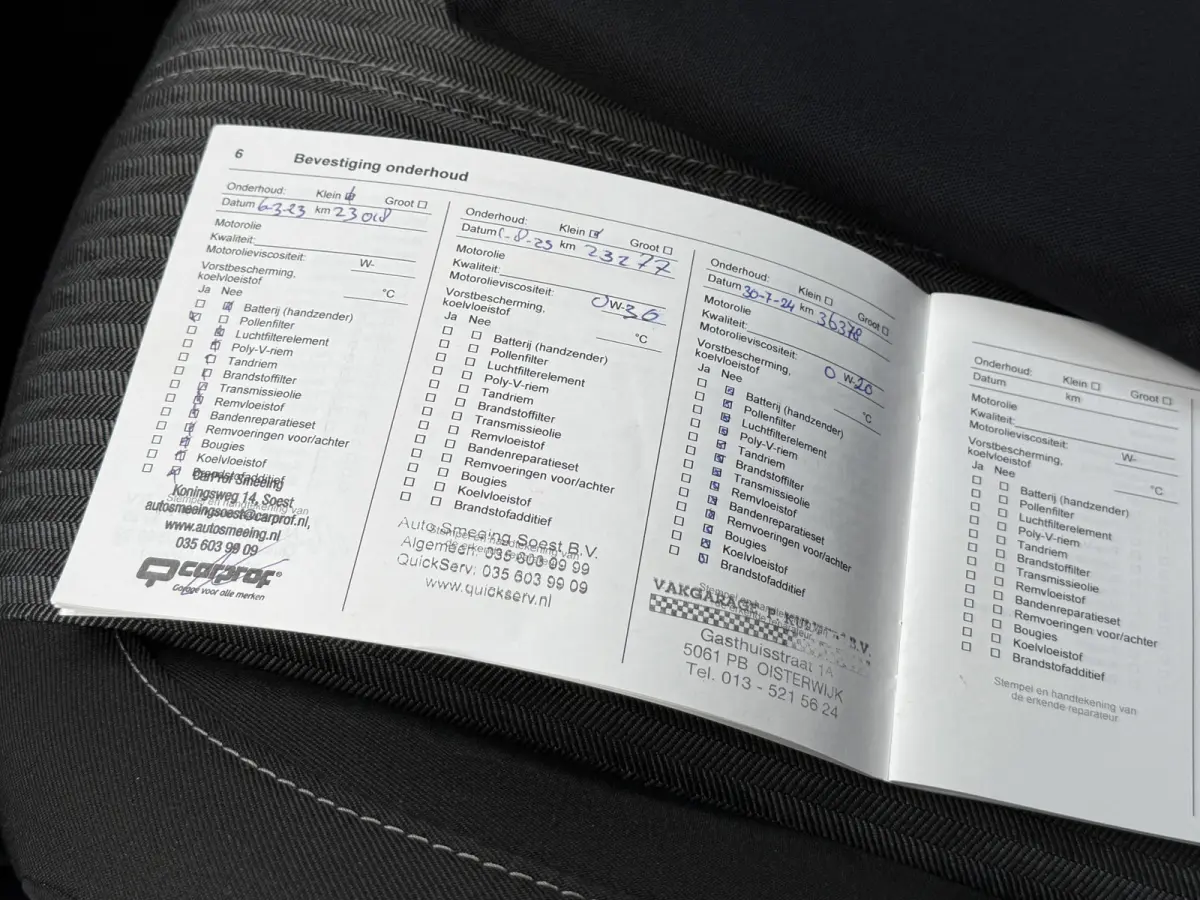 6 Bevestiging onderhoud
Onderhoud: Klein Groot
Datum 6-3-23 km 23018
Motorolie
Kwaliteit:
Motorolieviscositeit: W-
Vorstbescherming,
koelvloeistof °C
Ja Nee
Batterij (handzender)
Pollenfilter
Luchtfilterelement
Poly-V-riem
Tandriem
Brandstoffilter
Transmissieolie
Remvloeistof
Bandenreparatieset
Remvoeringen voor/achter
Bougies
Koelvloeistof
Brandstofadditief
CarProf Smeeing
Koningsweg 14, Soest
Stempel en handtekening van
autosmeeingsoest@carprof.nl,
www.autosmeeing.nl
035 603 99 09
carprof®
Garage voor alle merken
Onderhoud: Klein Groot
Datum 1-8-23 km 23277
Motorolie
Kwaliteit:
Motorolieviscositeit: 0W-30
Vorstbescherming,
koelvloeistof °C
Ja Nee
Batterij (handzender)
Pollenfilter
Luchtfilterelement
Poly-V-riem
Tandriem
Brandstoffilter
Transmissieolie
Remvloeistof
Bandenreparatieset
Remvoeringen voor/achter
Bougies
Koelvloeistof
Brandstofadditief
Auto Smeeing Soest B.V.
Stempel en handtekening van
de erkende reparateur
Algemeen: 035 603 99 99
QuickServ: 035 603 99 09
www.quickserv.nl
Onderhoud: Klein Groot
Datum 30-7-24 km 36378
Motorolie
Kwaliteit:
Motorolieviscositeit: 0 W-20
Vorstbescherming,
koelvloeistof °C
Ja Nee
Batterij (handzender)
Pollenfilter
Luchtfilterelement
Poly-V-riem
Tandriem
Brandstoffilter
Transmissieolie
Remvloeistof
Bandenreparatieset
Remvoeringen voor/achter
Bougies
Koelvloeistof
Brandstofadditief
Stempel en handtekening van
de erkende reparateur
VAKGARAGE P. B.V.
Gasthuisstraat 1A
5061 PB OISTERWIJK
Tel. 013 - 521 56 24
Onderhoud: Klein Groot
Datum km
Motorolie
Kwaliteit:
Motorolieviscositeit: W-
Vorstbescherming,
koelvloeistof °C
Ja Nee
Batterij (handzender)
Pollenfilter
Luchtfilterelement
Poly-V-riem
Tandriem
Brandstoffilter
Transmissieolie
Remvloeistof
Bandenreparatieset
Remvoeringen voor/achter
Bougies
Koelvloeistof
Brandstofadditief
Stempel en handtekening van
de erkende reparateur